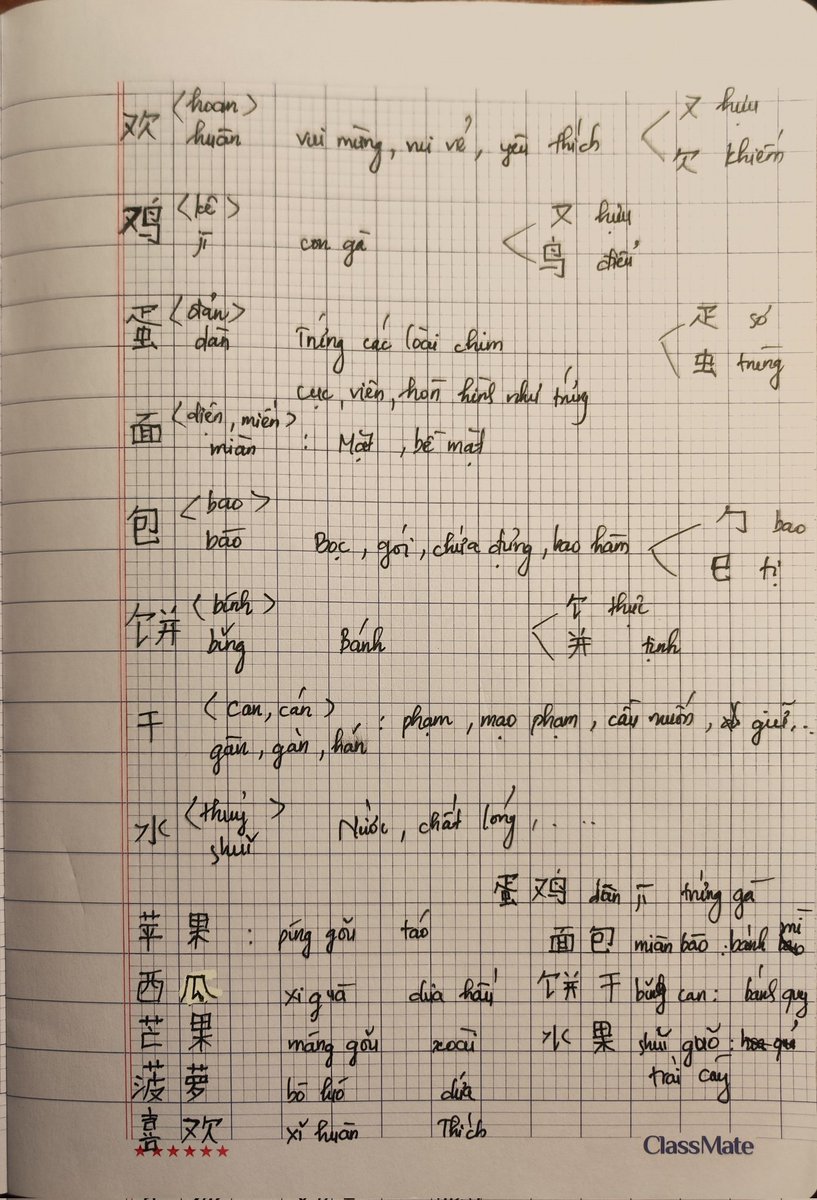 欢 <hoan> 又 hựu
huān vui mừng, vui vẻ, yêu thích 欠 khiếm
鸡 <kê> 又 hựu
jī con gà 鸟 điểu
蛋 <đản> 疋 sớ
dàn Trứng các loài chim 虫 trùng
cục, viên, hòn hình như trứng
面 <diện, miến>
miàn : Mặt, bề mặt
包 <bao> 勹 bao
bāo Bọc, gói, chứa đựng, bao hàm 巳 tị
饼 <bính> 饣 thực
bǐng Bánh 并 tịnh
干 <can, cán> : phạm, mạo phạm, cầu muốn, giữ,..
gān, gàn, hán
水 <thuỷ>
shuǐ Nước, chất lỏng, ...
蛋 鸡 dàn jī trứng gà
苹 果 : píng gǒu táo
面 包 miàn bāo : bánh mì
西 瓜 xi guā dưa hấu
饼 干 bǐng can : bánh quy
芒 果 máng gǒu xoài
水 果 shuǐ guǒ :
trái cây
菠 萝 bō luó dứa
喜 欢 xǐ huān Thích
ClassMate